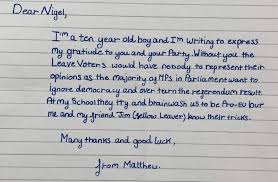 Dear Nigel,
I'm a ten year old boy and I'm writing to express
my gratitude to you and your Party. Without you the
Leave Voters would have nobody to represent their
opinions as the majority of MPs in Parliament want to
ignore democracy and over turn the referendum result.
At my School they try and brainwash us to be Pro-EU but
me and my friend Jim (fellow Leaver) know their tricks.
Many thanks and good luck,
from Matthew.